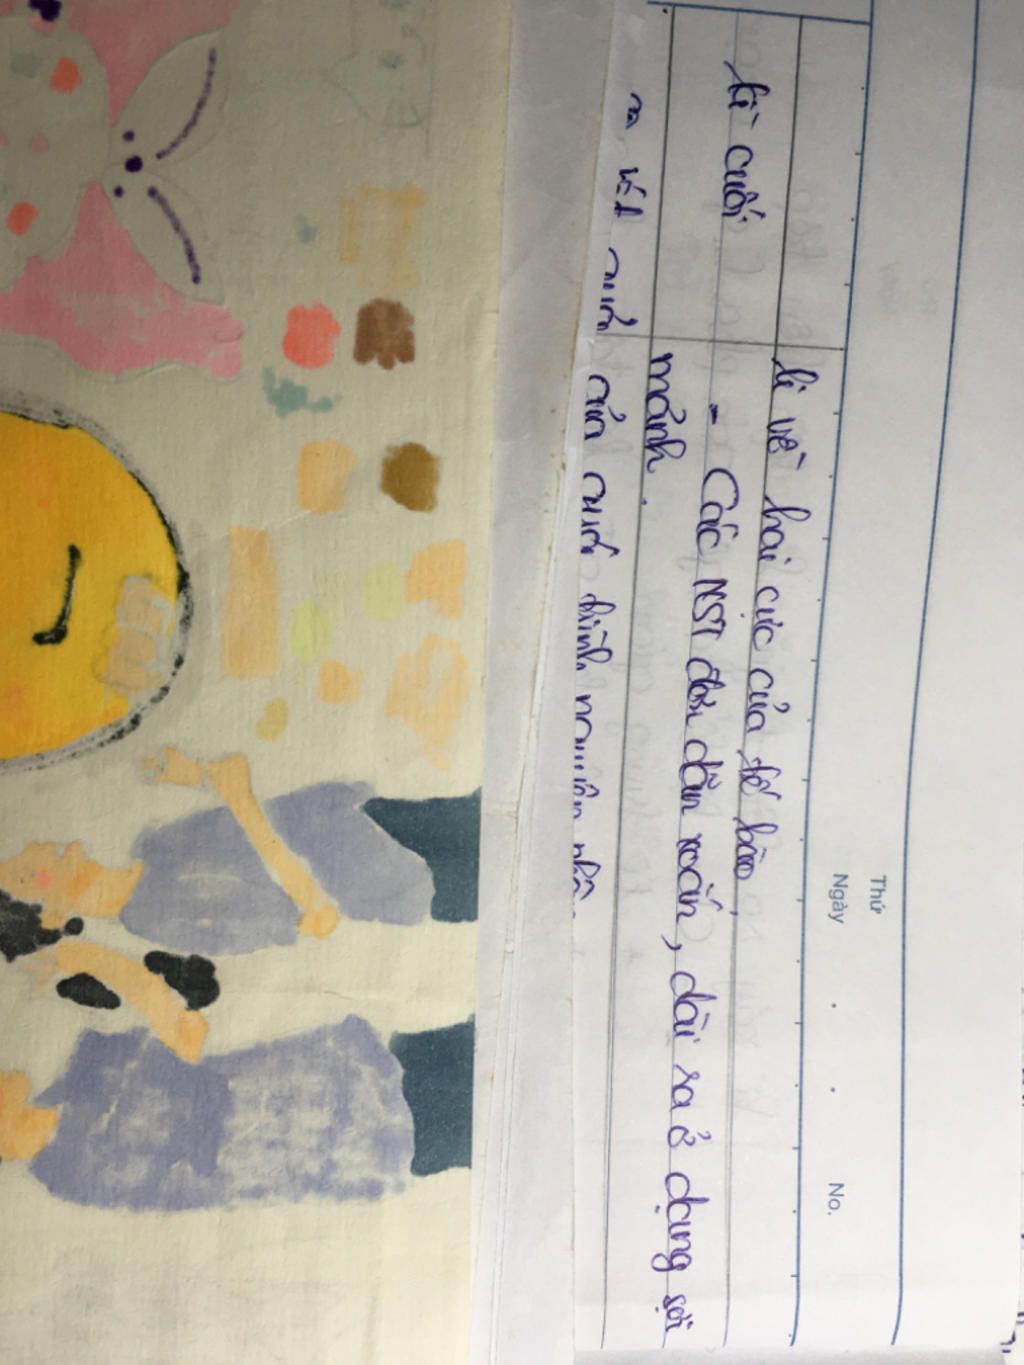 Thứ
Ngày . . No.
li về hai cực của tế bào
kì cuối - Các NST đơn dãn xoắn, dài ra ở dạng sợi
mảnh.
của quá trình nguyên phân